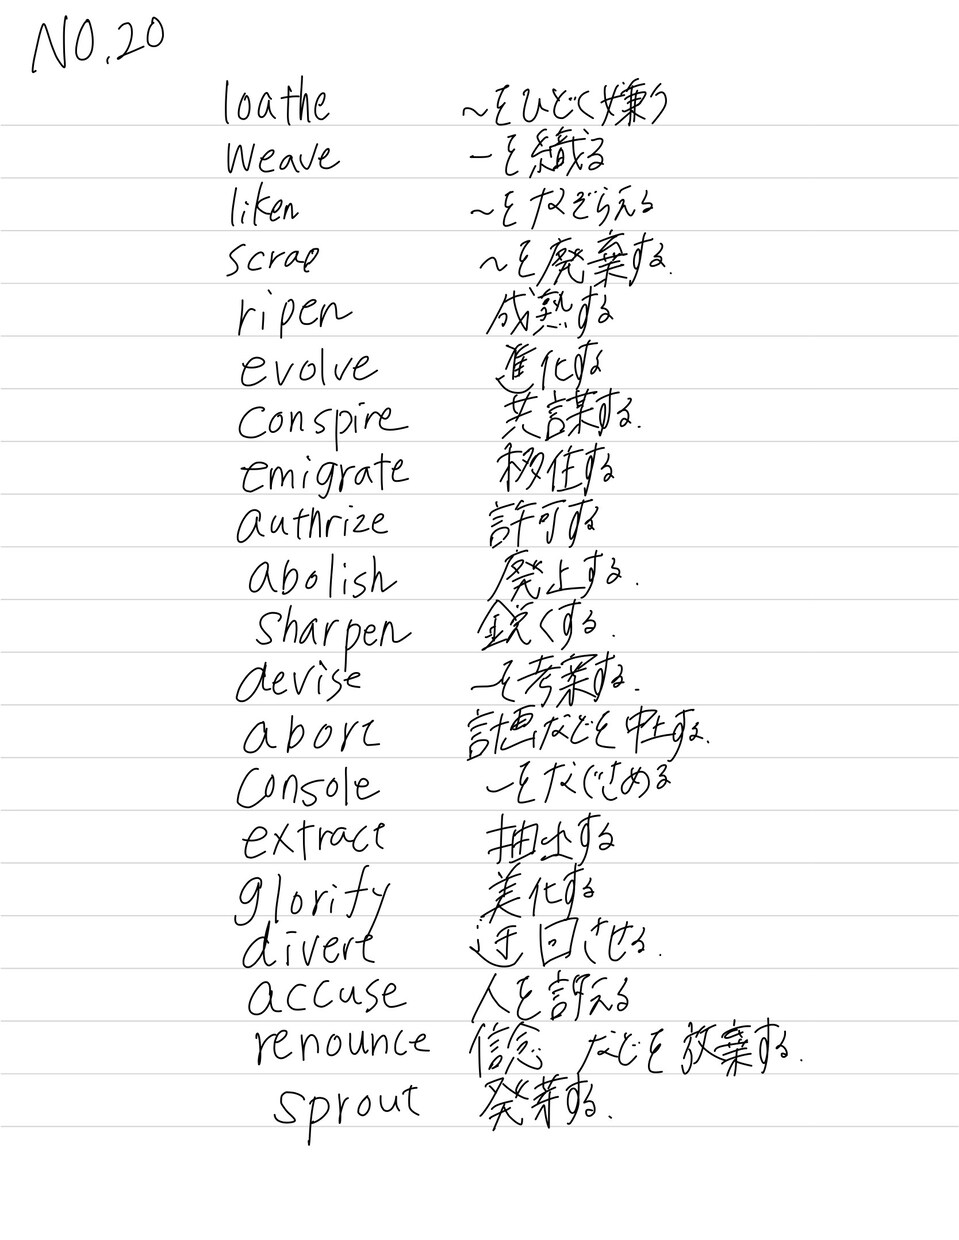 NO.20
loathe ～をひどく嫌う
weave ーを織る
liken ～をなぞらえる
scrap ～を廃棄する.
ripen 成熟する
evolve 進化する
conspire 共謀する.
emigrate 移住する
authrize 許可する
abolish 廃止する.
sharpen 鋭くする.
devise ーを考案する.
abort 計画などを中止する.
console ーをなぐさめる
extract 抽出する
glorify 美化する
divert 迂回させる.
accuse 人を訴える
renounce 信念 などを放棄する.
sprout 発芽する.